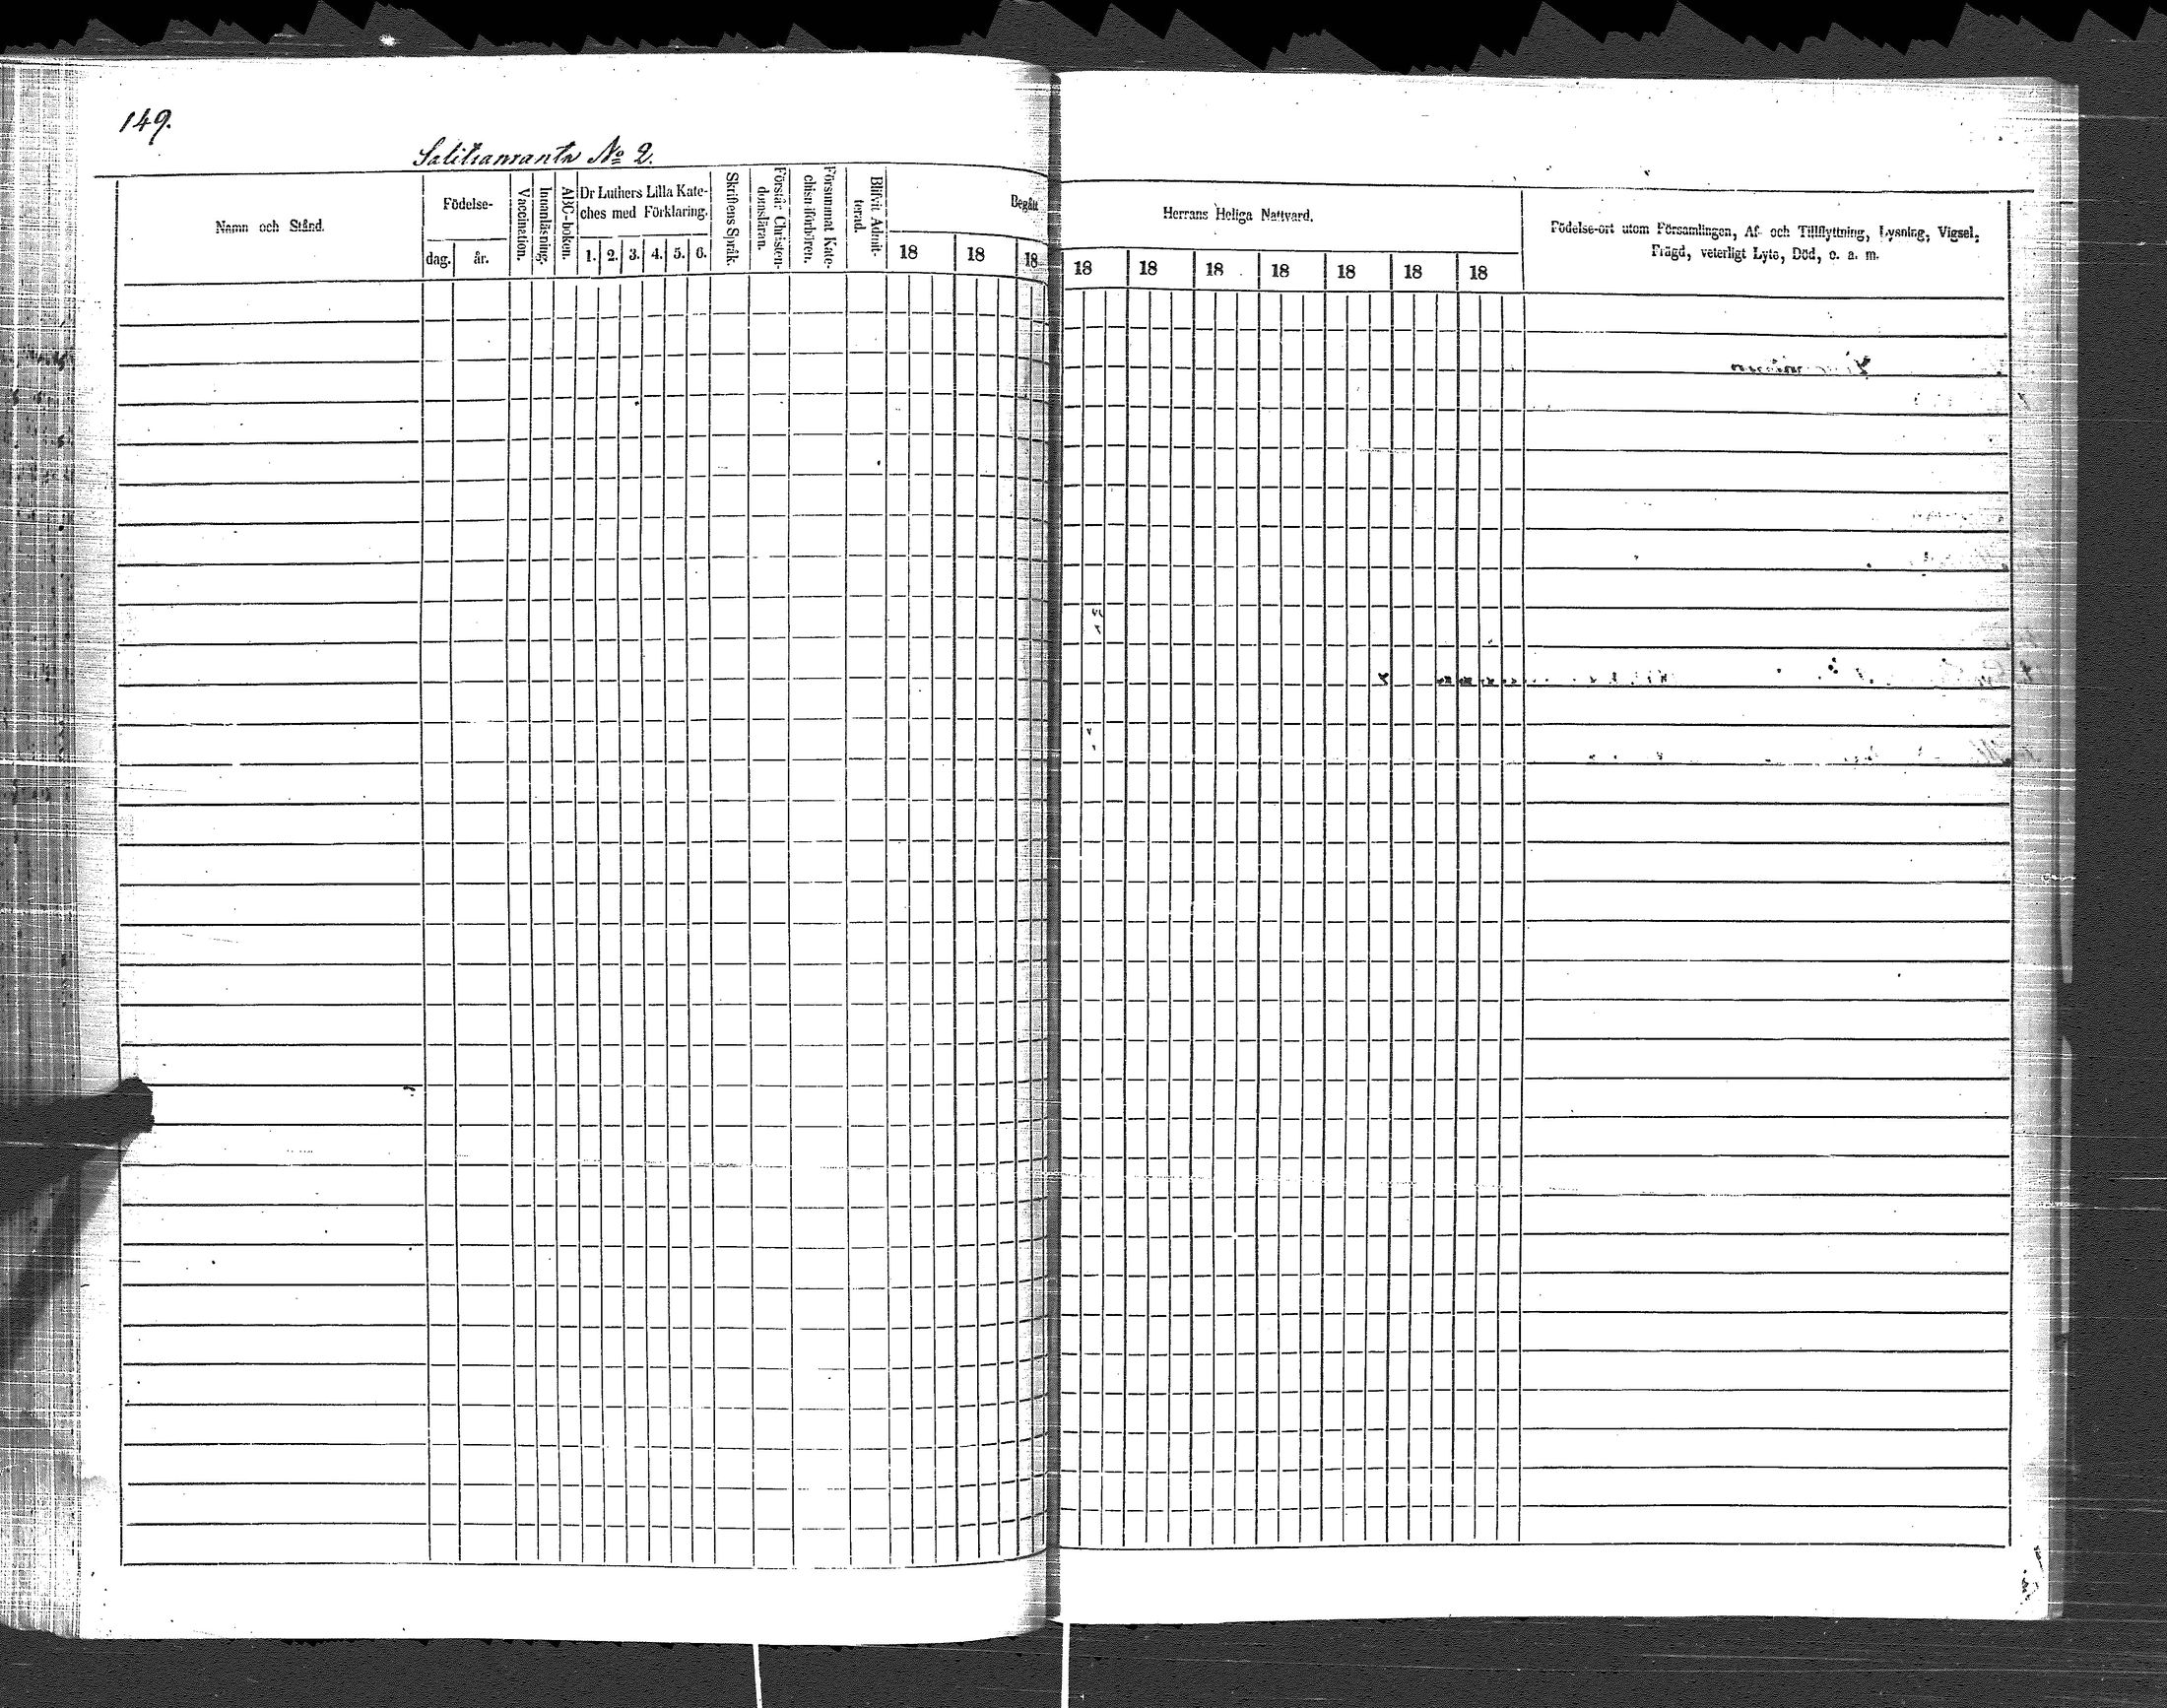 149.
Salitranranta No 2.
Namn och Stånd.
Födelse-
dag.
år.
Vaccination.
Innanläsning.
ABC-boken.
Dr Luthers Lilla Kate-
ches med Förklaring.
1. 2. 3. 4. 5. 6.
Skriftens Språk.
Förstår Christen-
domsläran.
Försummat Kate-
chismiförhören.
Blifvit Admit-
terad.
Begått
18 18 18
Herrans Heliga Nattvard.
18 18 18 18 18 18 18
Födelse-ort utom Församlingen, Af- och Tillflyttning, Lysning, Vigsel,
Frägd, veterligt Lyte, Död, o. a. m.